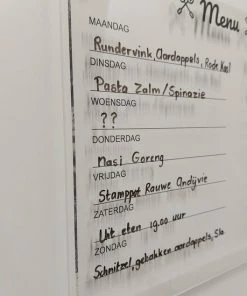 Menu
MAANDAG
Rundervink, Aardappels, Rode Kool
DINSDAG
Pasta Zalm/Spinazie
WOENSDAG
??
DONDERDAG
Nasi Goreng
VRIJDAG
Stamppot Rauwe Andijvie
ZATERDAG
Uit eten 19.00 uur
ZONDAG
Schnitzel, gebakken aardappels, Sla